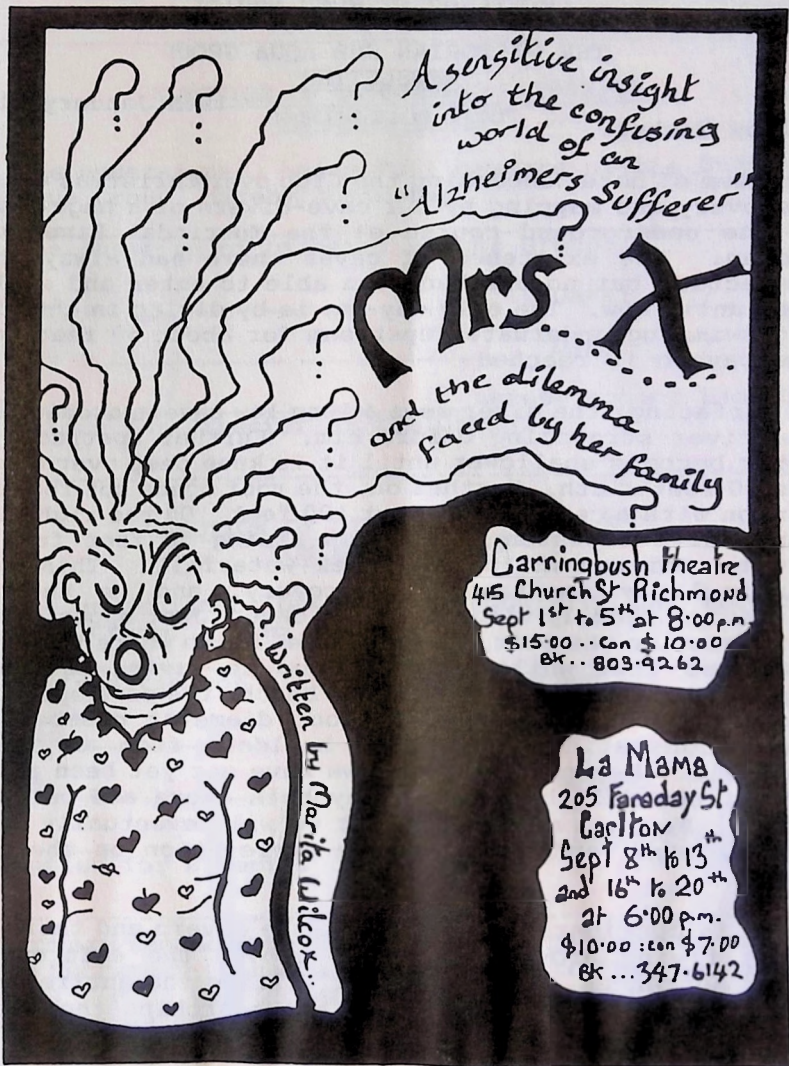 A sensitive insight
into the confusing
world of an
"Alzheimers Sufferer"
Mrs... X
and the dilemma
faced by her family
Carringbush Theatre
415 Church St Richmond
Sept 1st to 5th at 8.00 p.m
$15.00 .. con $10.00
BK.. 803.9262
Written by Marita Wilcox..
La Mama
205 Faraday St
Carlton
Sept 8th to 13th
and 16th to 20th
at 6.00 p.m.
$10.00 : con $7.00
BK ...347.6142